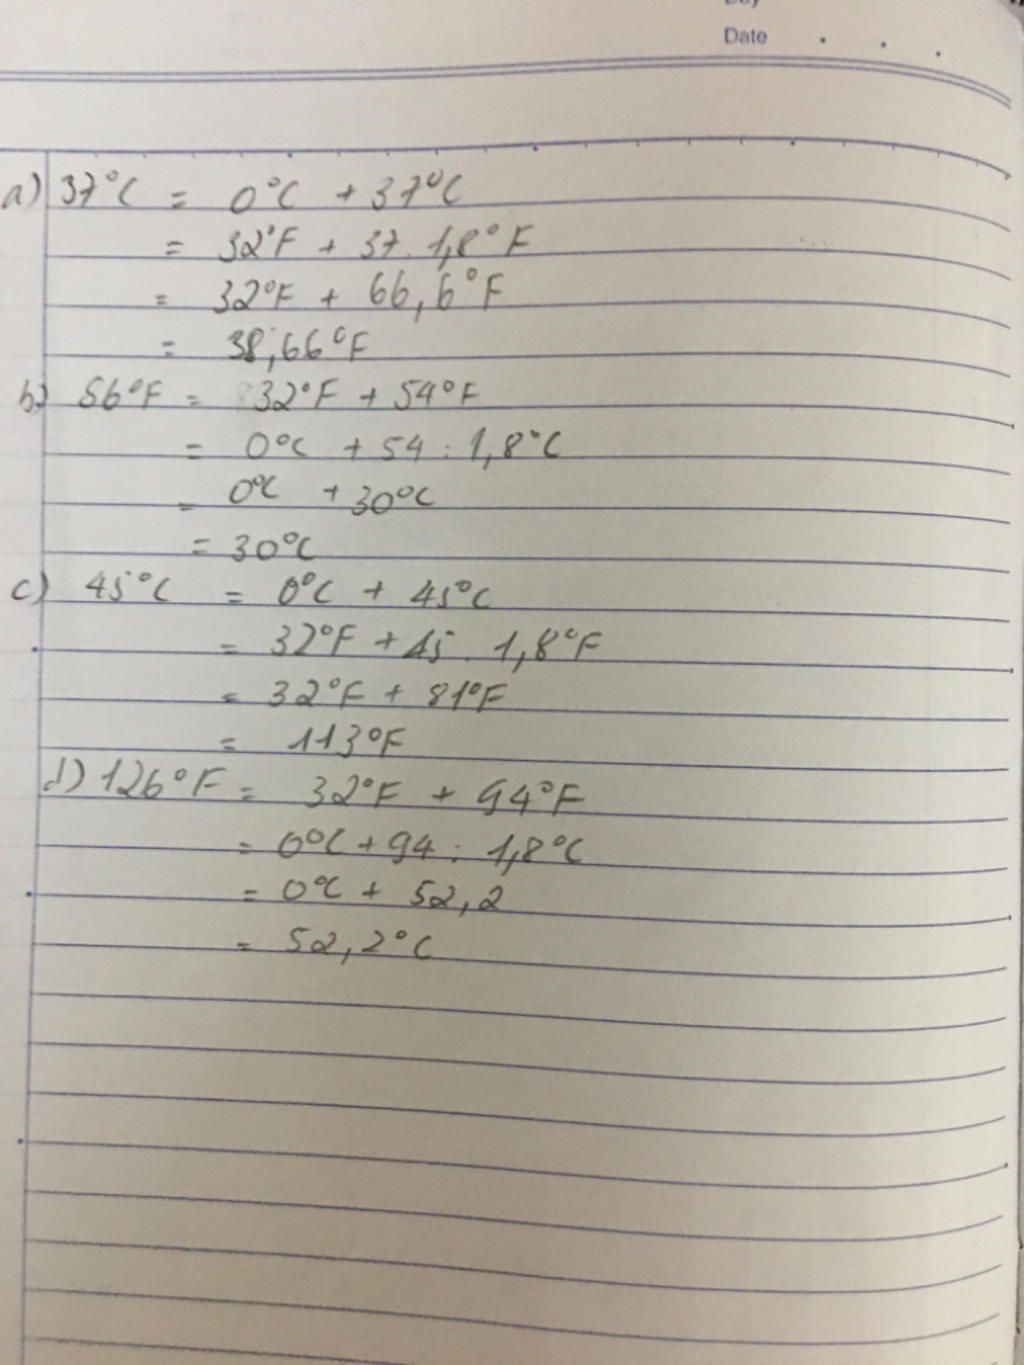 Date
a) 37°C = 0°C + 37°C
= 32°F + 37 . 1,8°F
= 32°F + 66,6°F
= 38,66°F
b) 56°F = 32°F + 54°F
= 0°C + 54 : 1,8°C
= 0°C + 30°C
= 30°C
c) 45°C = 0°C + 45°C
= 32°F + 45 . 1,8°F
= 32°F + 81°F
= 113°F
d) 126°F = 32°F + 94°F
= 0°C + 94 : 1,8°C
= 0°C + 52,2
= 52,2°C